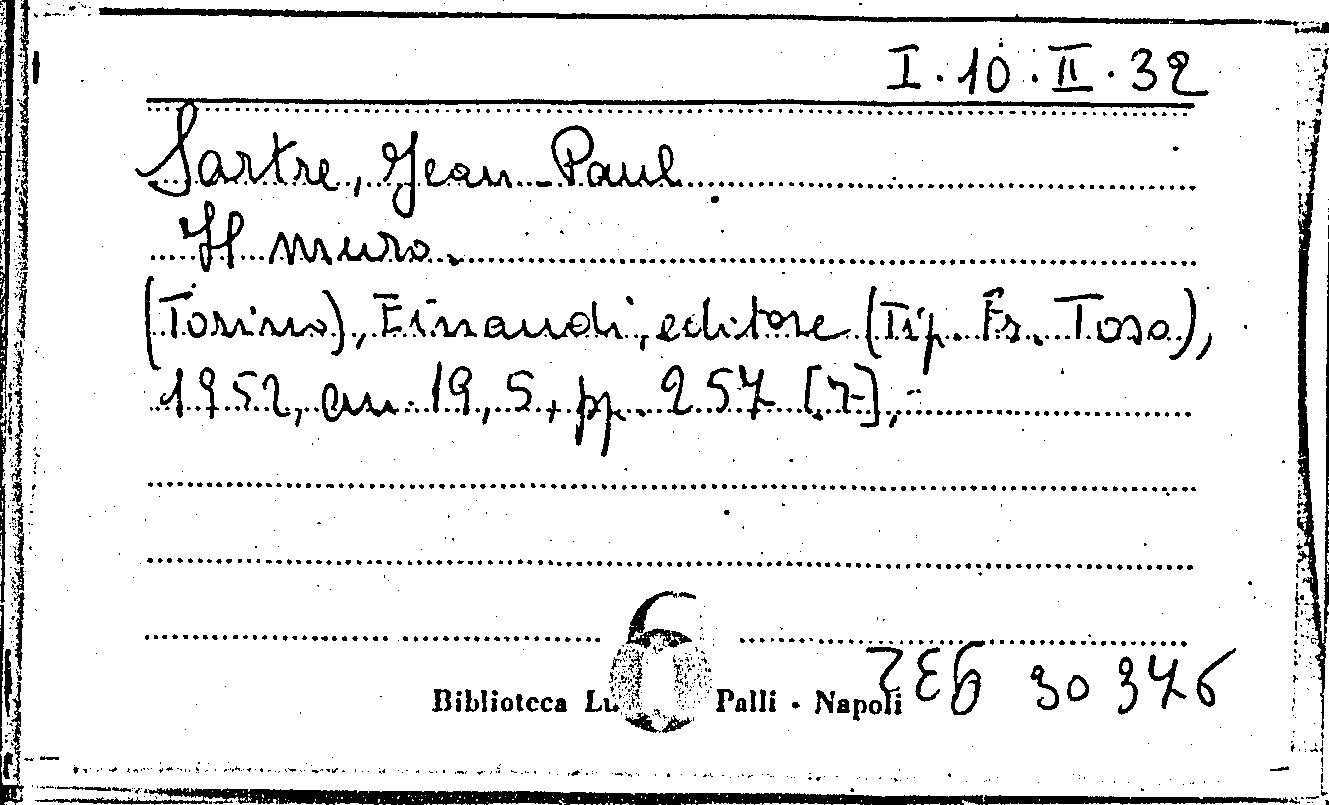 I.10.II.32
Sartre, Jean Paul
Il muro.
(Torino), Einaudi, editore (Tip. Fr. Toso),
1952, cm. 19,5, pp. 257 [7],
6
Biblioteca Lu Palli - Napoli
30376